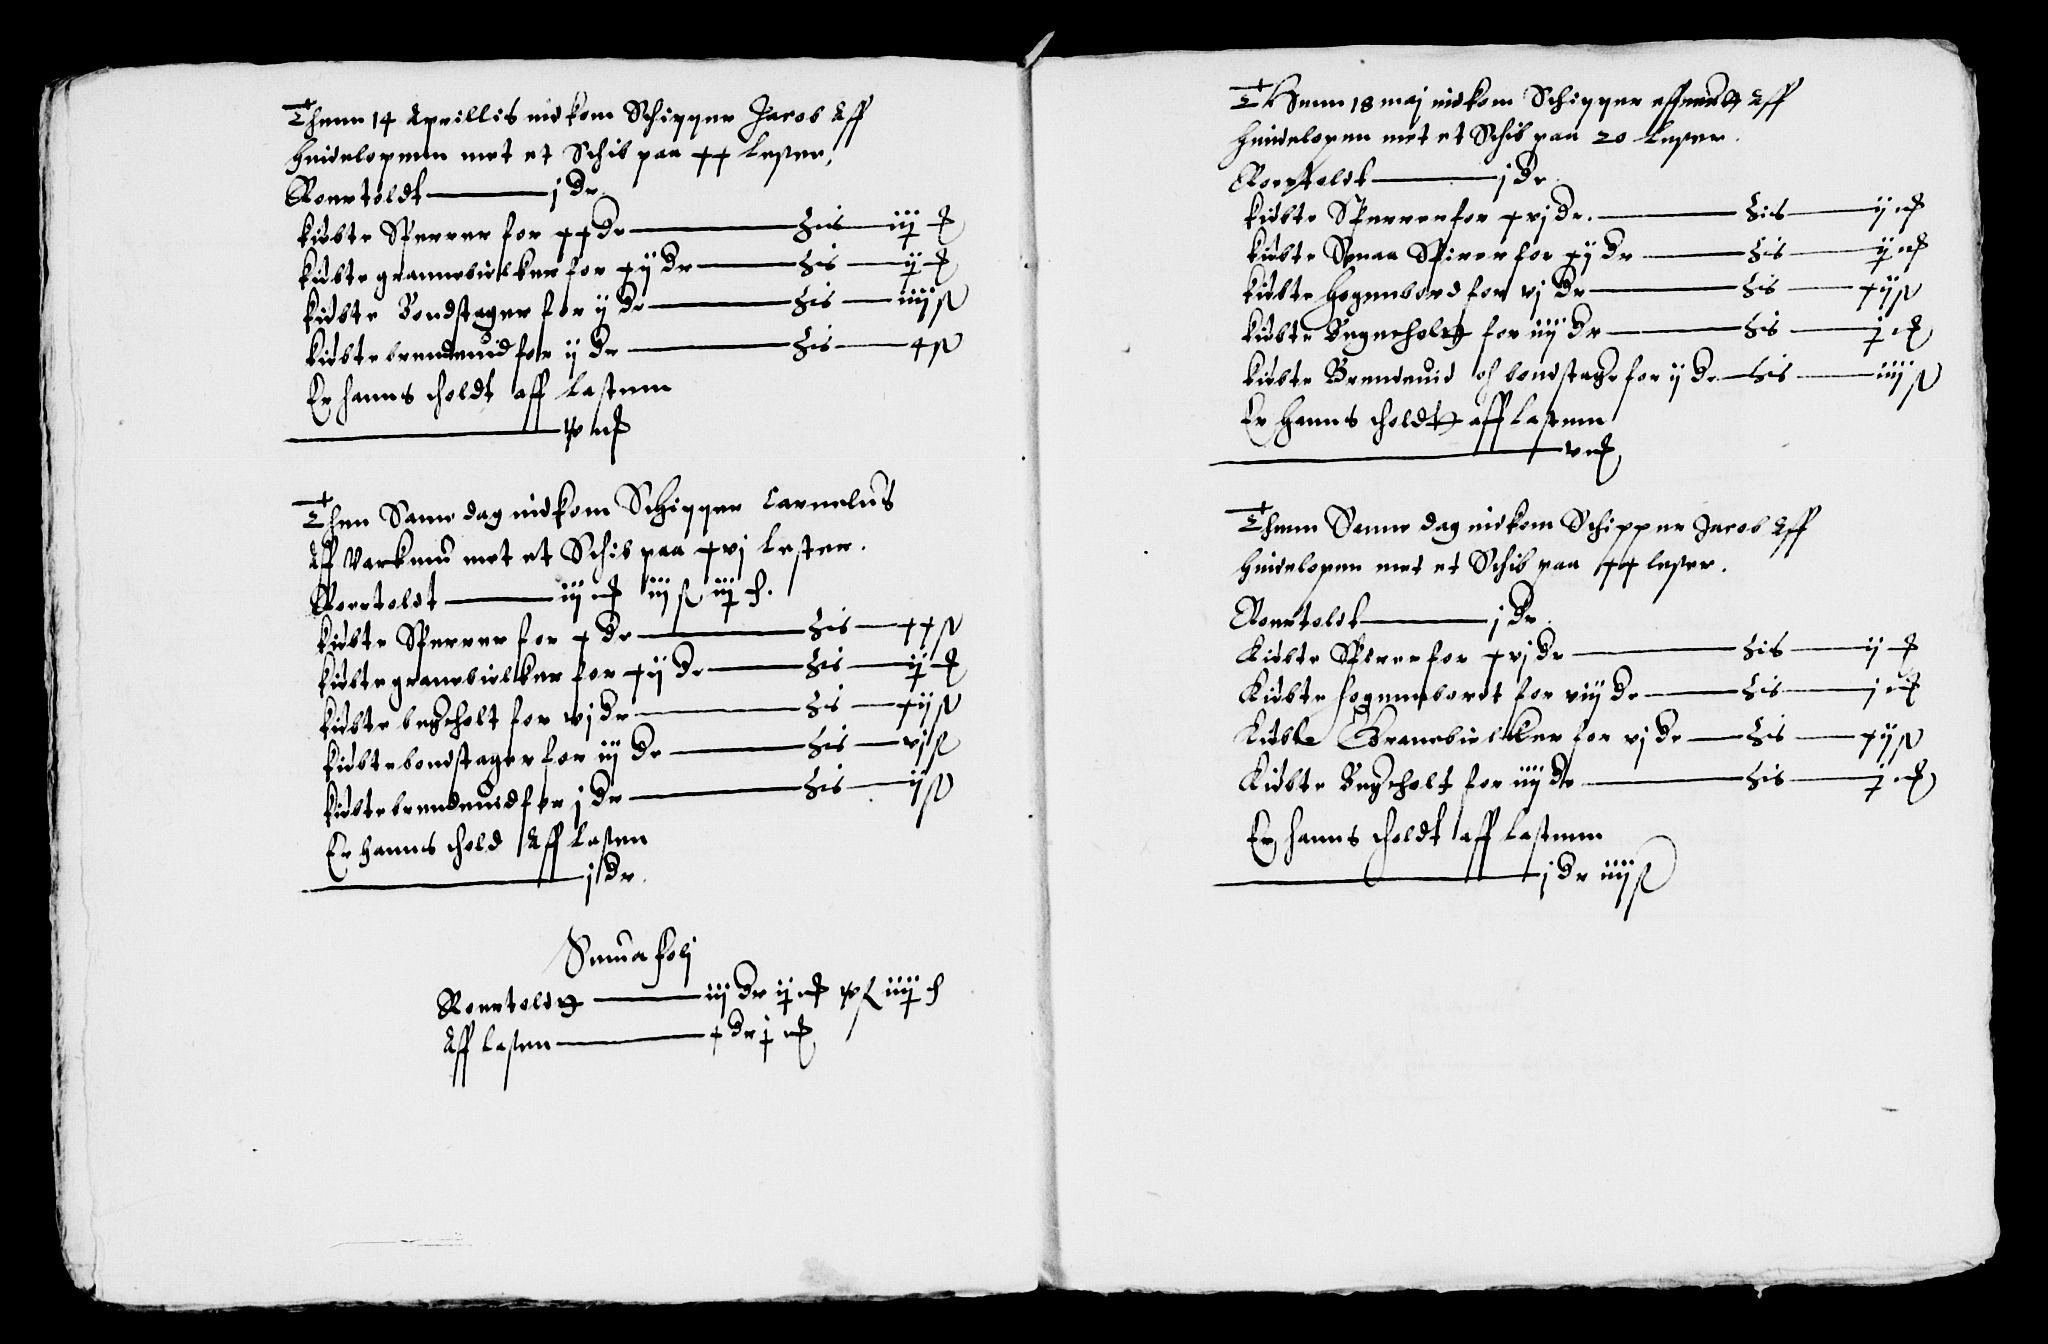 Thenn 14 Aprillis indkom Schipper Jacob Aff
hindelopenn met et Schib paa xx Lester,
Roertoldt — j Dr
kiøbte Sperrer for xx Dr — his — iij
kiøbte granebielker for xij Dr — his — ij
kiøbte Bondstager for ij Dr — his — iiij ß
kiøbte brendeuid for ij Dr — his — 4 ß
Er hanns tholdt aff Lastenn
— v mk
Then Same dag indkom Schipper Carnelius
Aff Varkum met et Schib paa xvj Lester.
Roertoldt — iij mk iij ß iij
kiøbte Sperrer for x Dr — his — xx ß
kiøbte granebielker for xij Dr — his — ij
kiøbte begeholt for vj Dr — his — xij ß
kiøbte bondstager for iij Dr — his — vj ß
kiøbte brendeuid for j Dr — his — ij ß
Er hanns thold Aff Lasten
— j Dr.
Suma folj
Roertoldt — iij Dr ij mk v ß iiij
Aff Lasten — x Dr j mk
Thenn 18 maj indkom Schipper Aff
hindelopen met et Schib paa 20 Lester.
Roertoldt — j Dr
kiøbte Sperrer for xvj Dr. — his — ij mk
kiøbte Smaa Spirer for xij Dr — his — ij mk
kiøbte hogenbord for vj Dr — his — xij ß
kiøbte Begeholt for iiij Dr — his — j mk
kiøbte Brendeuid oc bondstage for ij Dr — his — iiij ß
Er hanns tholdt aff Lastenn
— v mk
Thenn Same dag indkom Schipper Jacob Aff
hindelopen met et Schib paa xx lester.
Roertoldt — j Dr.
Kiøbte Spirer for xvj Dr — his — ij mk
Kiøbte hogennbordt for viij Dr — his — j mk
Kiøbte Granebielker for vj Dr — his — xij ß
Kiøbte Begeholt for iiij Dr — his — j mk
Er hanns tholdt aff Lastenn
— j Dr iiij ß